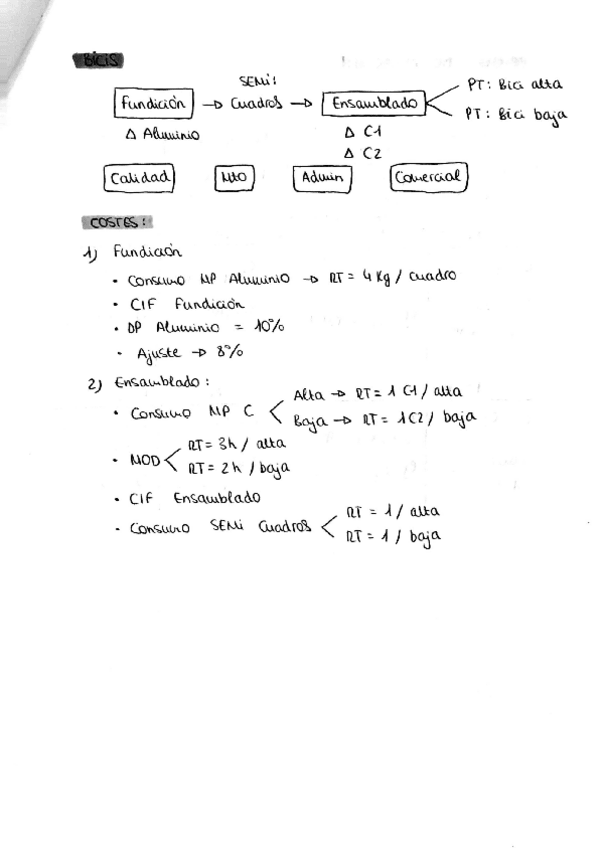 BICIS
SEMi:
Fundición → Cuadros → Ensamblado
PT: Bici alta
PT: Bici baja
Δ Aluminio
Δ C1
Δ C2
Calidad Mto Admin Comercial
COSTES:
1) Fundición
· Consumo MP Aluminio → RT = 4 Kg / cuadro
· CIF Fundición
· DP Aluminio = 10%
· Ajuste → 8%
2) Ensamblado:
· Consumo MP C
Alta → RT = 1 C1 / alta
Baja → RT = 1 C2 / baja
· MOD
RT = 3h / alta
RT = 2h / baja
· CIF Ensamblado
· Consumo SEMi Cuadros
RT = 1 / alta
RT = 1 / baja